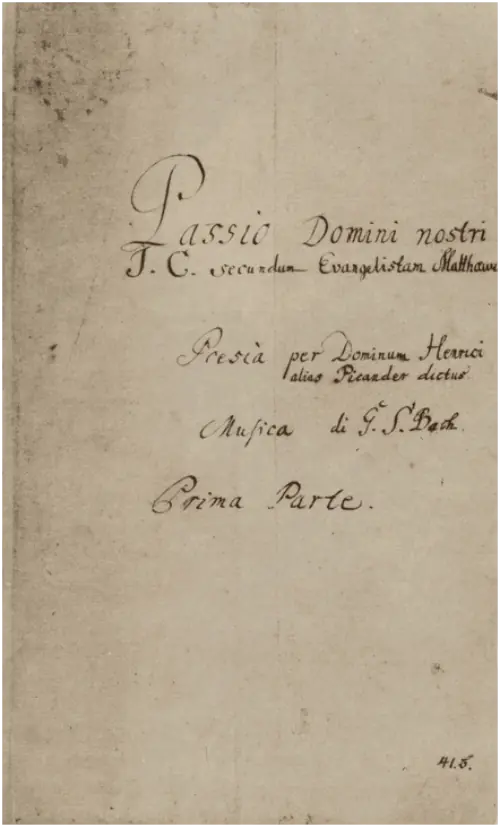 Passio Domini nostri
J. C. secundum Evangelistam Matthæum
Poesia per Dominum Henrici
alias Picander dictus
Musica di G. S. Bach.
Prima Parte.
41.5.